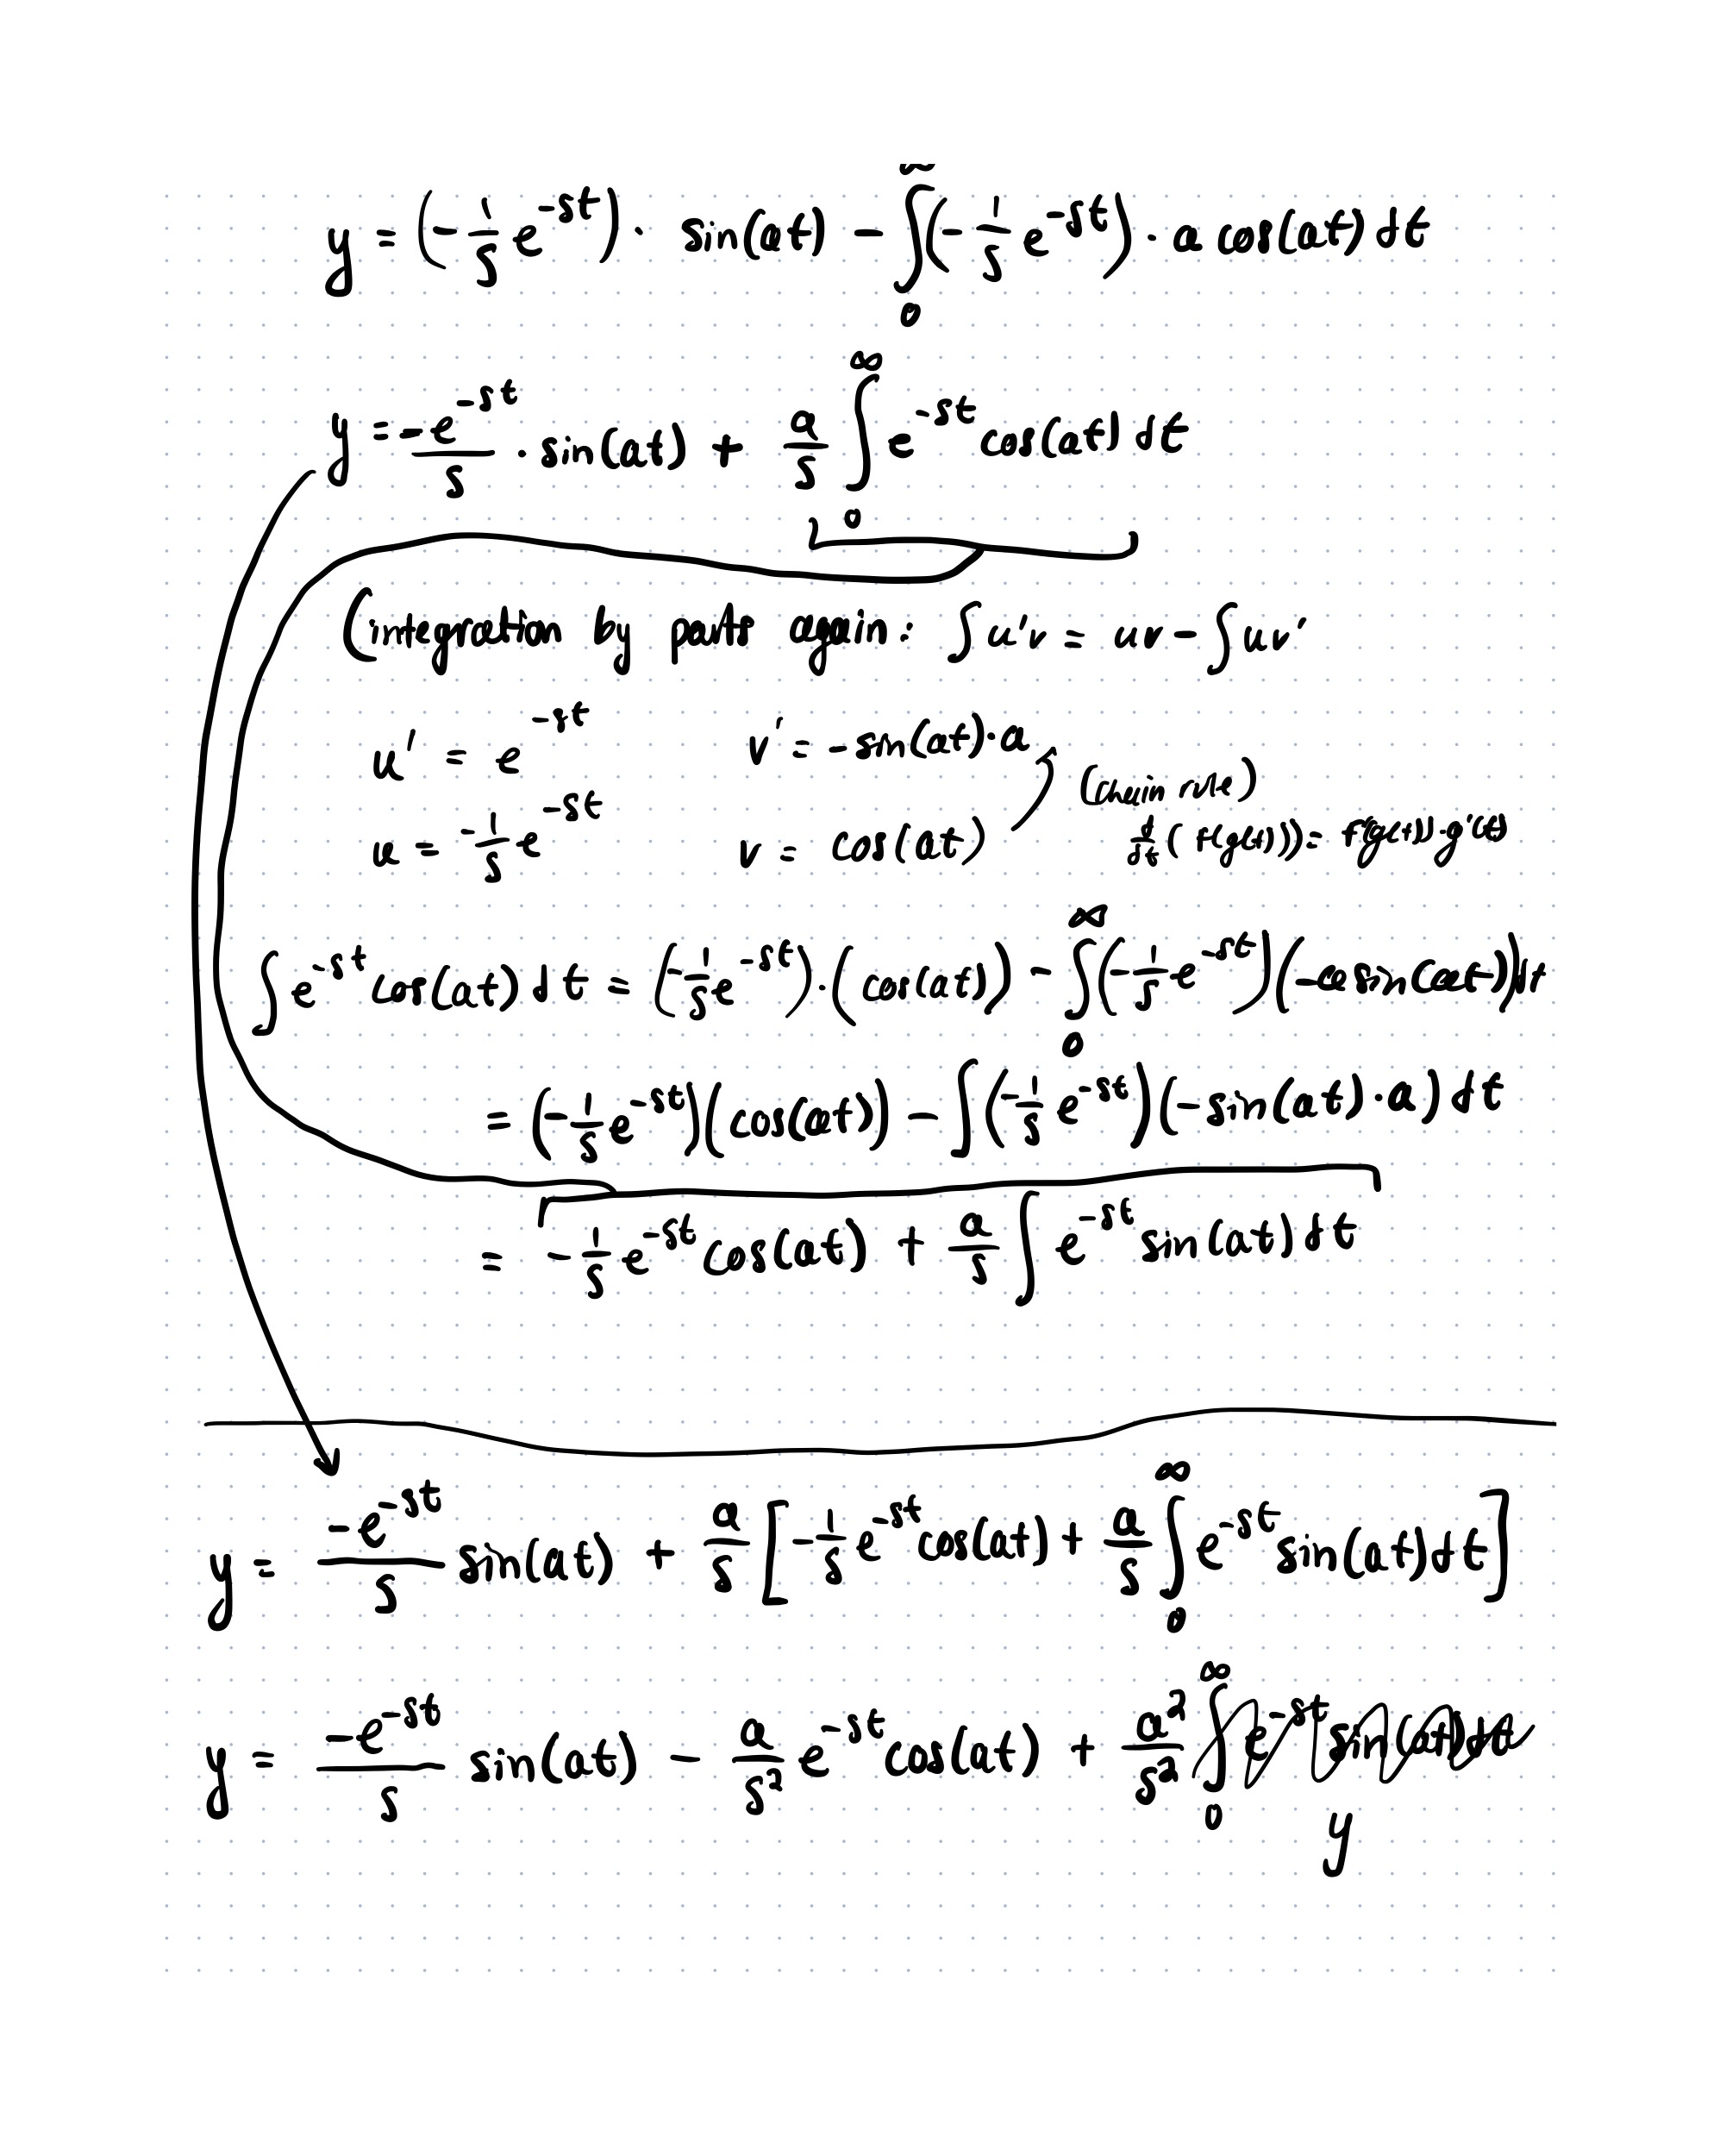 y = (-1/s e^{-st}) · sin(at) - ∫_0^∞ (-1/s e^{-st}) · a cos(at) dt
y = -e^{-st}/s · sin(at) + a/s ∫_0^∞ e^{-st} cos(at) dt
(integration by parts again: ∫u'v = uv - ∫uv'
u' = e^{-st} v' = -sin(at)·a
(chain rule)
u = -1/s e^{-st} v = cos(at) d/dt (f(g(t))) = f'(g(t))·g'(t)
∫ e^{-st} cos(at) dt = (-1/s e^{-st})·(cos(at)) - ∫_0^∞ (-1/s e^{-st})(-a sin(at)) dt
= (-1/s e^{-st})(cos(at)) - ∫ (-1/s e^{-st})(-sin(at)·a) dt
= -1/s e^{-st} cos(at) + a/s ∫ e^{-st} sin(at) dt
y = -e^{-st}/s sin(at) + a/s [-1/s e^{-st} cos(at) + a/s ∫_0^∞ e^{-st} sin(at) dt]
y = -e^{-st}/s sin(at) - a/s² e^{-st} cos(at) + a²/s² ∫_0^∞ e^{-st} sin(at) dt
y